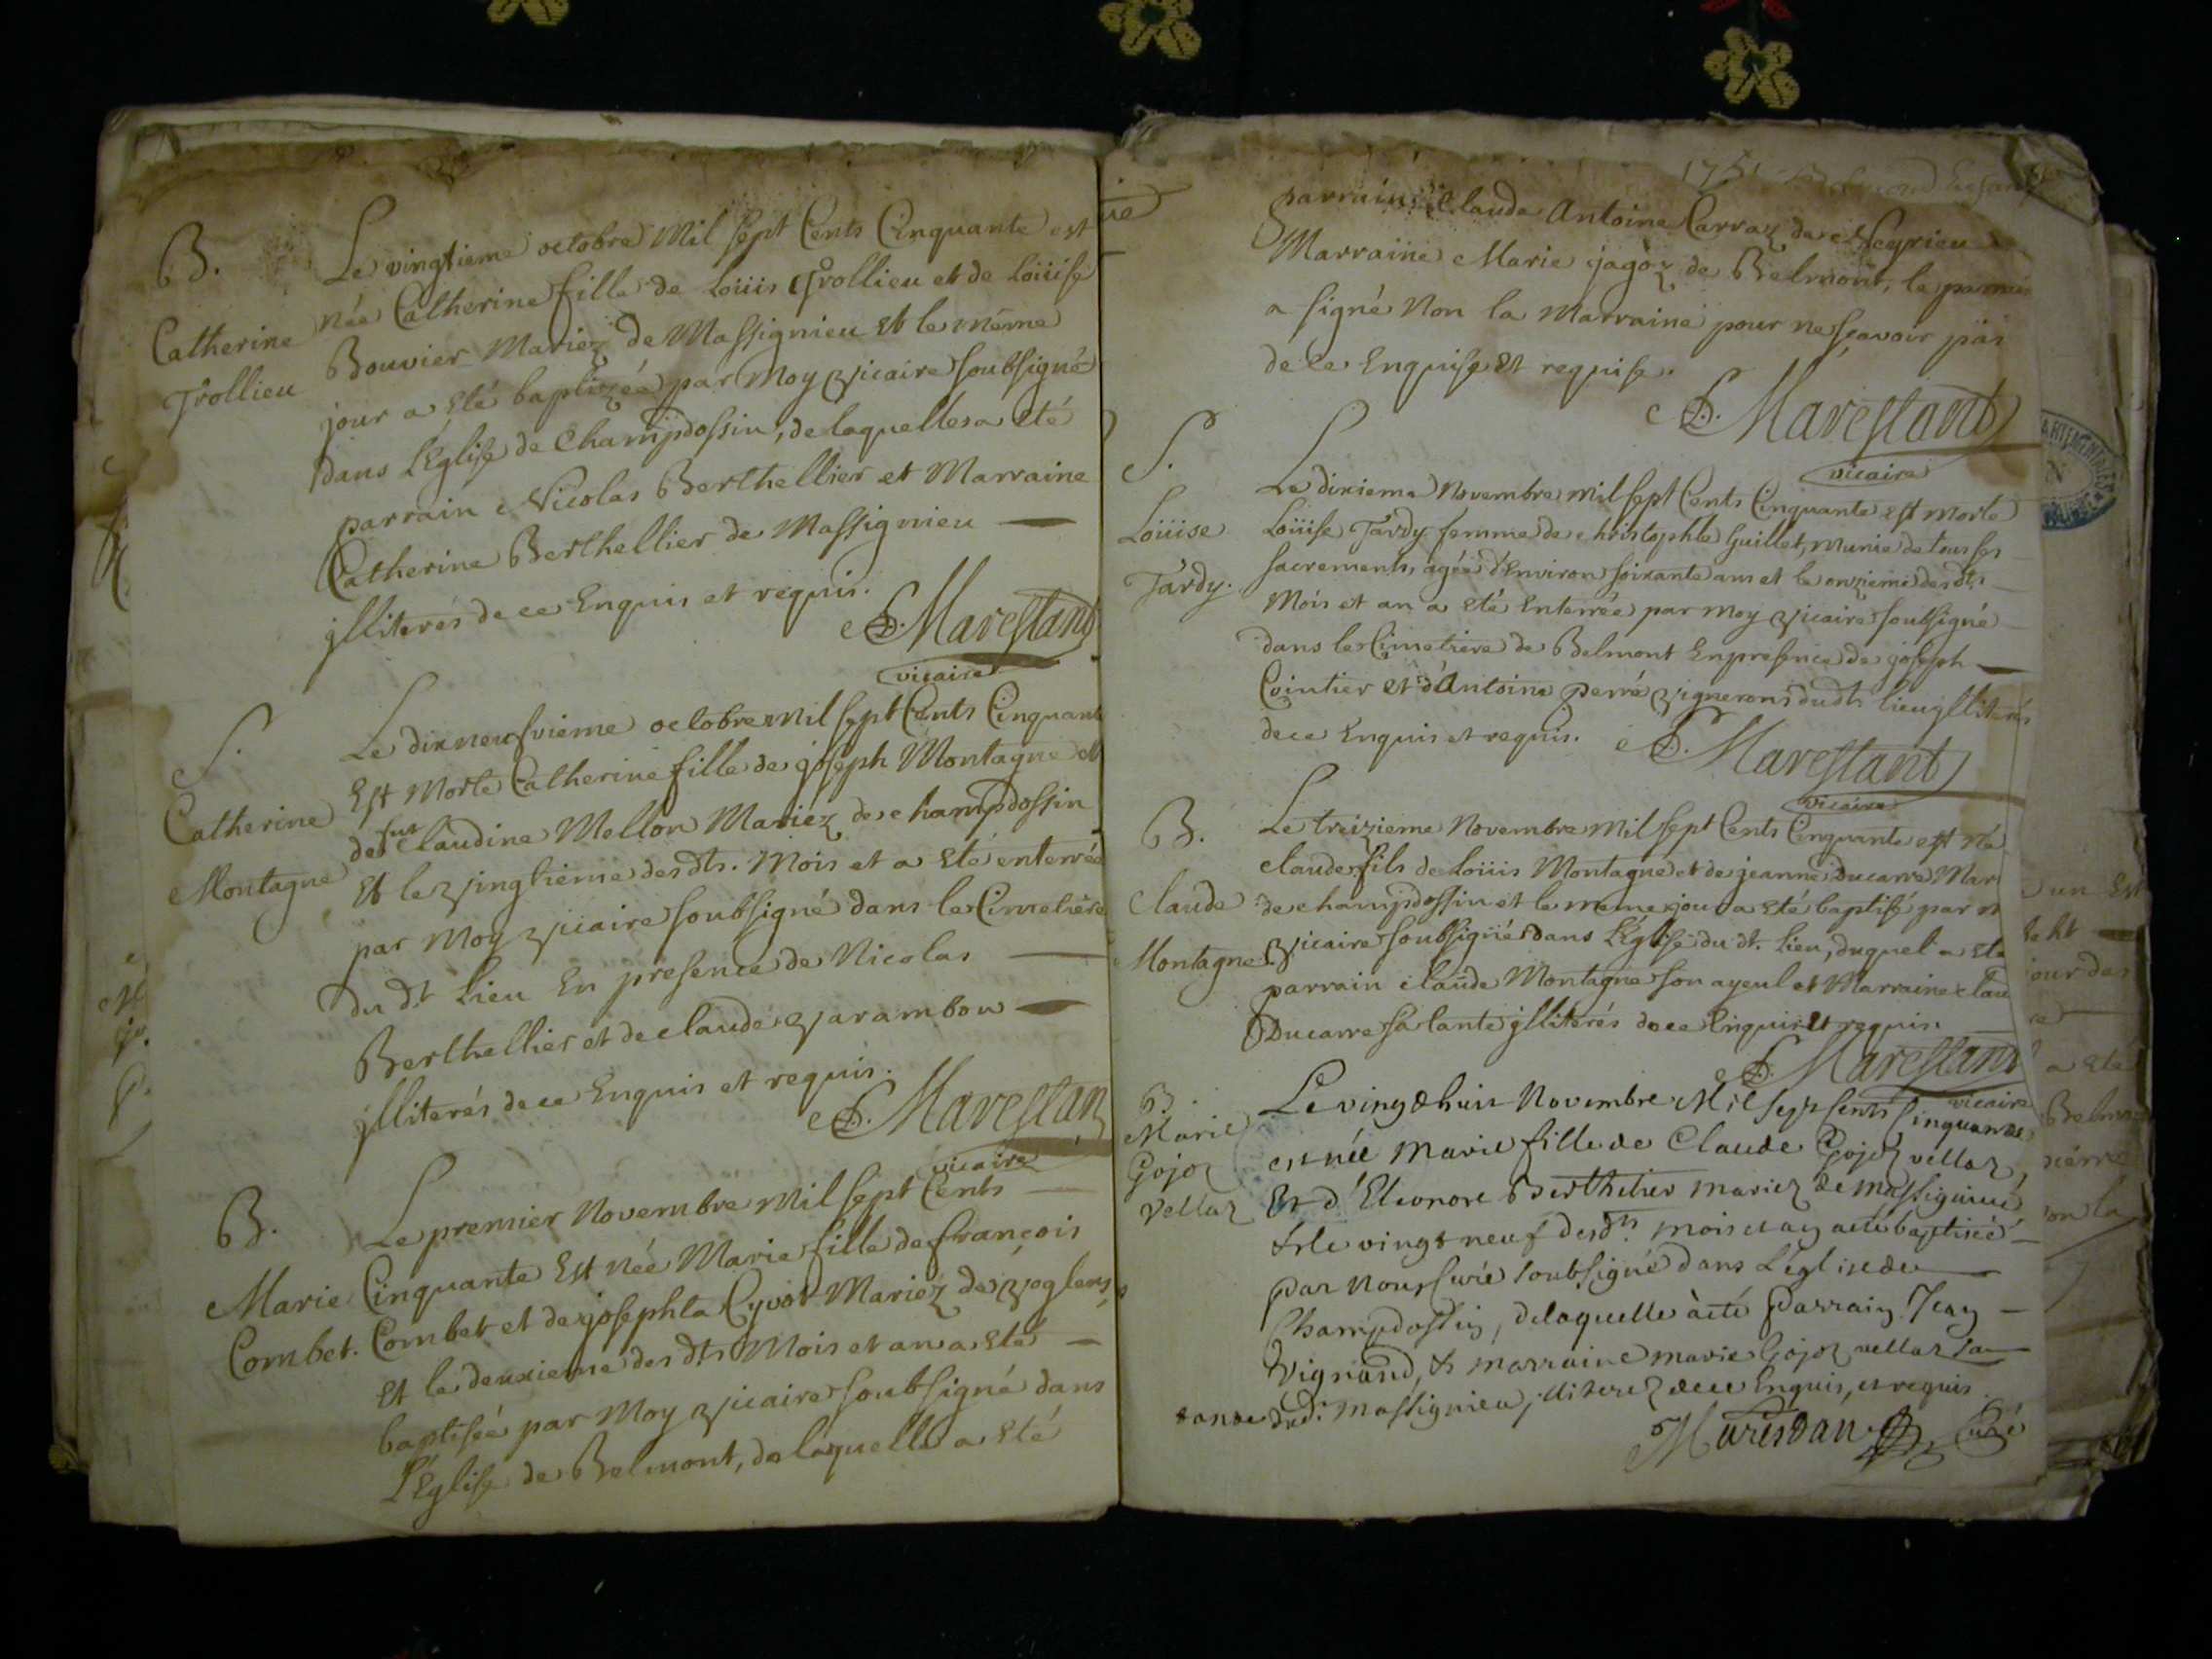 B.
Catherine
Trollieu
Le vingtieme octobre Mil sept Cents Cinquante est
née Catherine fille de Loüis Trollieu et de Loüise
Bouvier Mariéz de Massignieu Et le même
jour a Eté baptizéé par Moy Vicaire soubsigné
dans L'Eglise de Champdossin, de laquelle a Eté
parrain Nicolas Berthellier et Marraine
Catherine Berthellier de Massignieu
jlliterés de ce Enquis et requis.
Marestant
vicaire
S.
Catherine
Montagne
Le dixneufvieme octobre Mil sept Cents Cinquante
Est Morte Catherine fille de joseph Montagne et
de fut Claudine Mellon Mariéz de champdossin
Et le Vingtieme des dts. Mois et a Eté enterrée
par Moy Vicaire soubsigné dans le Cimetiere
du dt Lieu En presence de Nicolas
Berthellier et de claude Varambon
jlliterés de ce Enquis et requis.
Marestan
vicaire
B.
Marie
Combet.
Le premier Novembre Mil sept Cents
Cinquante Est Née Marie fille de françois
Combet et de josephta Cyvot Mariéz de
Et le deuxieme des dts Mois et an a Eté
baptiséé par Moy Vicaire soubsigné dans
L'Eglise de Belmont, de laquelle a Eté
1751
parrain Claude Antoine Carraz de Ceyzrieu
Marraine Marie jagoz de Belmont, le parrain
a signé Non la Marraine pour ne sçavoir pas
de ce Enquise Et requise.
Marestant
vicaire
S.
Loüise
Tardy.
Le dixieme Novembre mil sept Cents Cinquante est morte
Loüise Tardy femme de christophle Guillet, munie de tous ses
sacrements, agéé d'Environ soixante ans et le onzieme des dts
Mois et an a Eté Enterrée par moy Vicaire soubsigné
dans le Cimetiere de Belmont En presence de joseph
Cointier et d'Antoine perré Vignerons du dt lieu jlliterés
de ce Enquis et requis.
Marestant
vicaire
B.
Claude
Montagne
Le treizieme Novembre mil sept Cents Cinquante est Né
claude fils de Loüis Montagne et de jeanne Ducarre Mar
de champdossin et le meme jour a Eté baptisé par m
Vicaire soubsigné dans L'Eglise du dt. Lieu, duquel a Eté
parrain claude Montagne son ayeul et Marraine clau
Ducarre sa tante jlliterés de ce Enquis Et requis
Marestant
vicaire
B.
Marie
Gojoz
Vellaz
Le vingt huit Novembre Mil sept cents Cinquante
est née Marie fille de Claude Gojoz vellaz
Et d'Eleonore Berthelier mariez de massignieu
& le vingt neuf desdts mois et an a été baptiséé
par Nous Curé soubsigné dans L'église de
Champdossin, de laquelle a été parrain Jean
Vignand, & marraine marie Gojoz vellaz sa
tante dud. massignieu, illiterez de ce Enquis, et requis
Curé
un Est
jour des
a Eté
Belmo